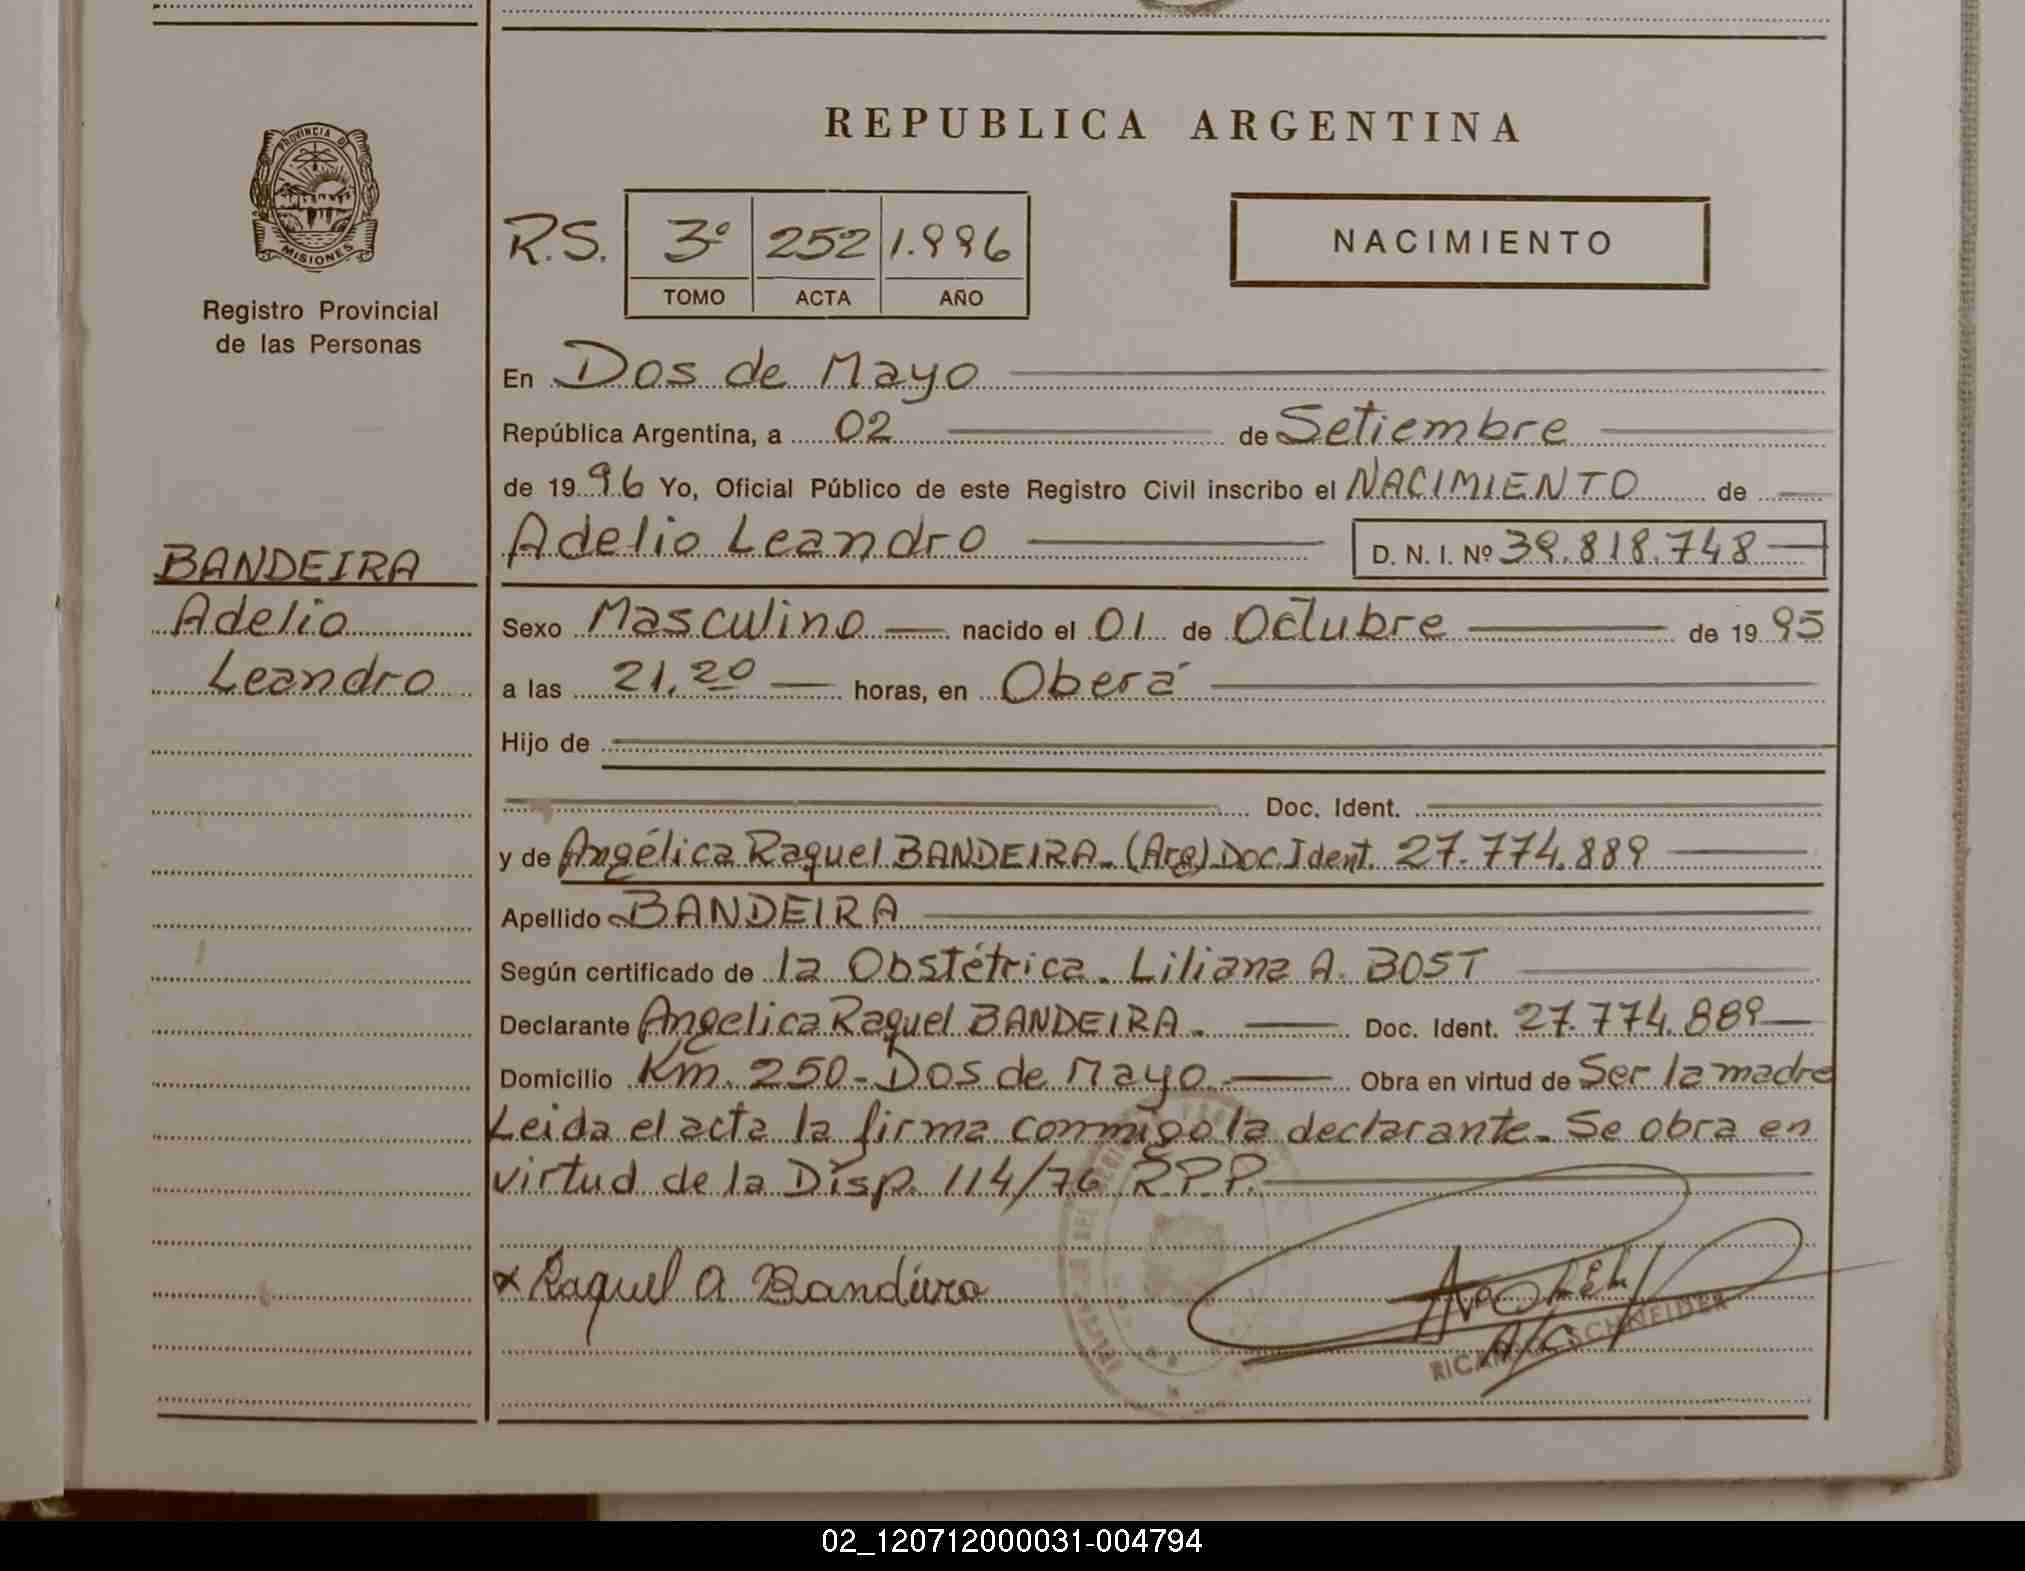 PROVINCIA DE
MISIONES
Registro Provincial
de las Personas
BANDEIRA
Adelio
Leandro
REPUBLICA ARGENTINA
R.S. 3º 252 1.996
TOMO ACTA AÑO
NACIMIENTO
En Dos de Mayo
República Argentina, a 02 de Setiembre
de 1996 Yo, Oficial Público de este Registro Civil inscribo el NACIMIENTO de
Adelio Leandro D. N. I. Nº 39.818.748
Sexo Masculino nacido el 01 de Octubre de 1995
a las 21,20 horas, en Oberá
Hijo de
Doc. Ident.
y de Angélica Raquel BANDEIRA. (Arg) Doc. Ident. 27.774.889
Apellido BANDEIRA
Según certificado de la Obstétrica. Liliana A. BOST
Declarante Angelica Raquel BANDEIRA. Doc. Ident. 27.774.889
Domicilio Km. 250 - Dos de Mayo Obra en virtud de Ser la madre
Leida el acta la firma conmigo la declarante. Se obra en
virtud de la Disp. 114/76 R.P.P.
x Raquel A Bandeira
A/C SCHNEIDER
02_120712000031-004794